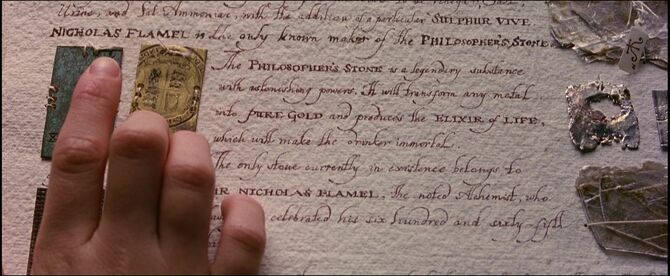 Urine, and Sal Ammoniac, with the addition of a particular SULPHUR VIVE
NICHOLAS FLAMEL is the only known maker of the PHILOSOPHER'S STONE
The PHILOSOPHER'S STONE is a legendary substance
with astonishing powers. It will transform any metal
into PURE GOLD and produces the ELIXIR of LIFE,
which will make the drinker immortal.
The only stone currently in existence belongs to
NICHOLAS FLAMEL, the noted Alchemist, who
celebrated his six hundred and sixty-fifth